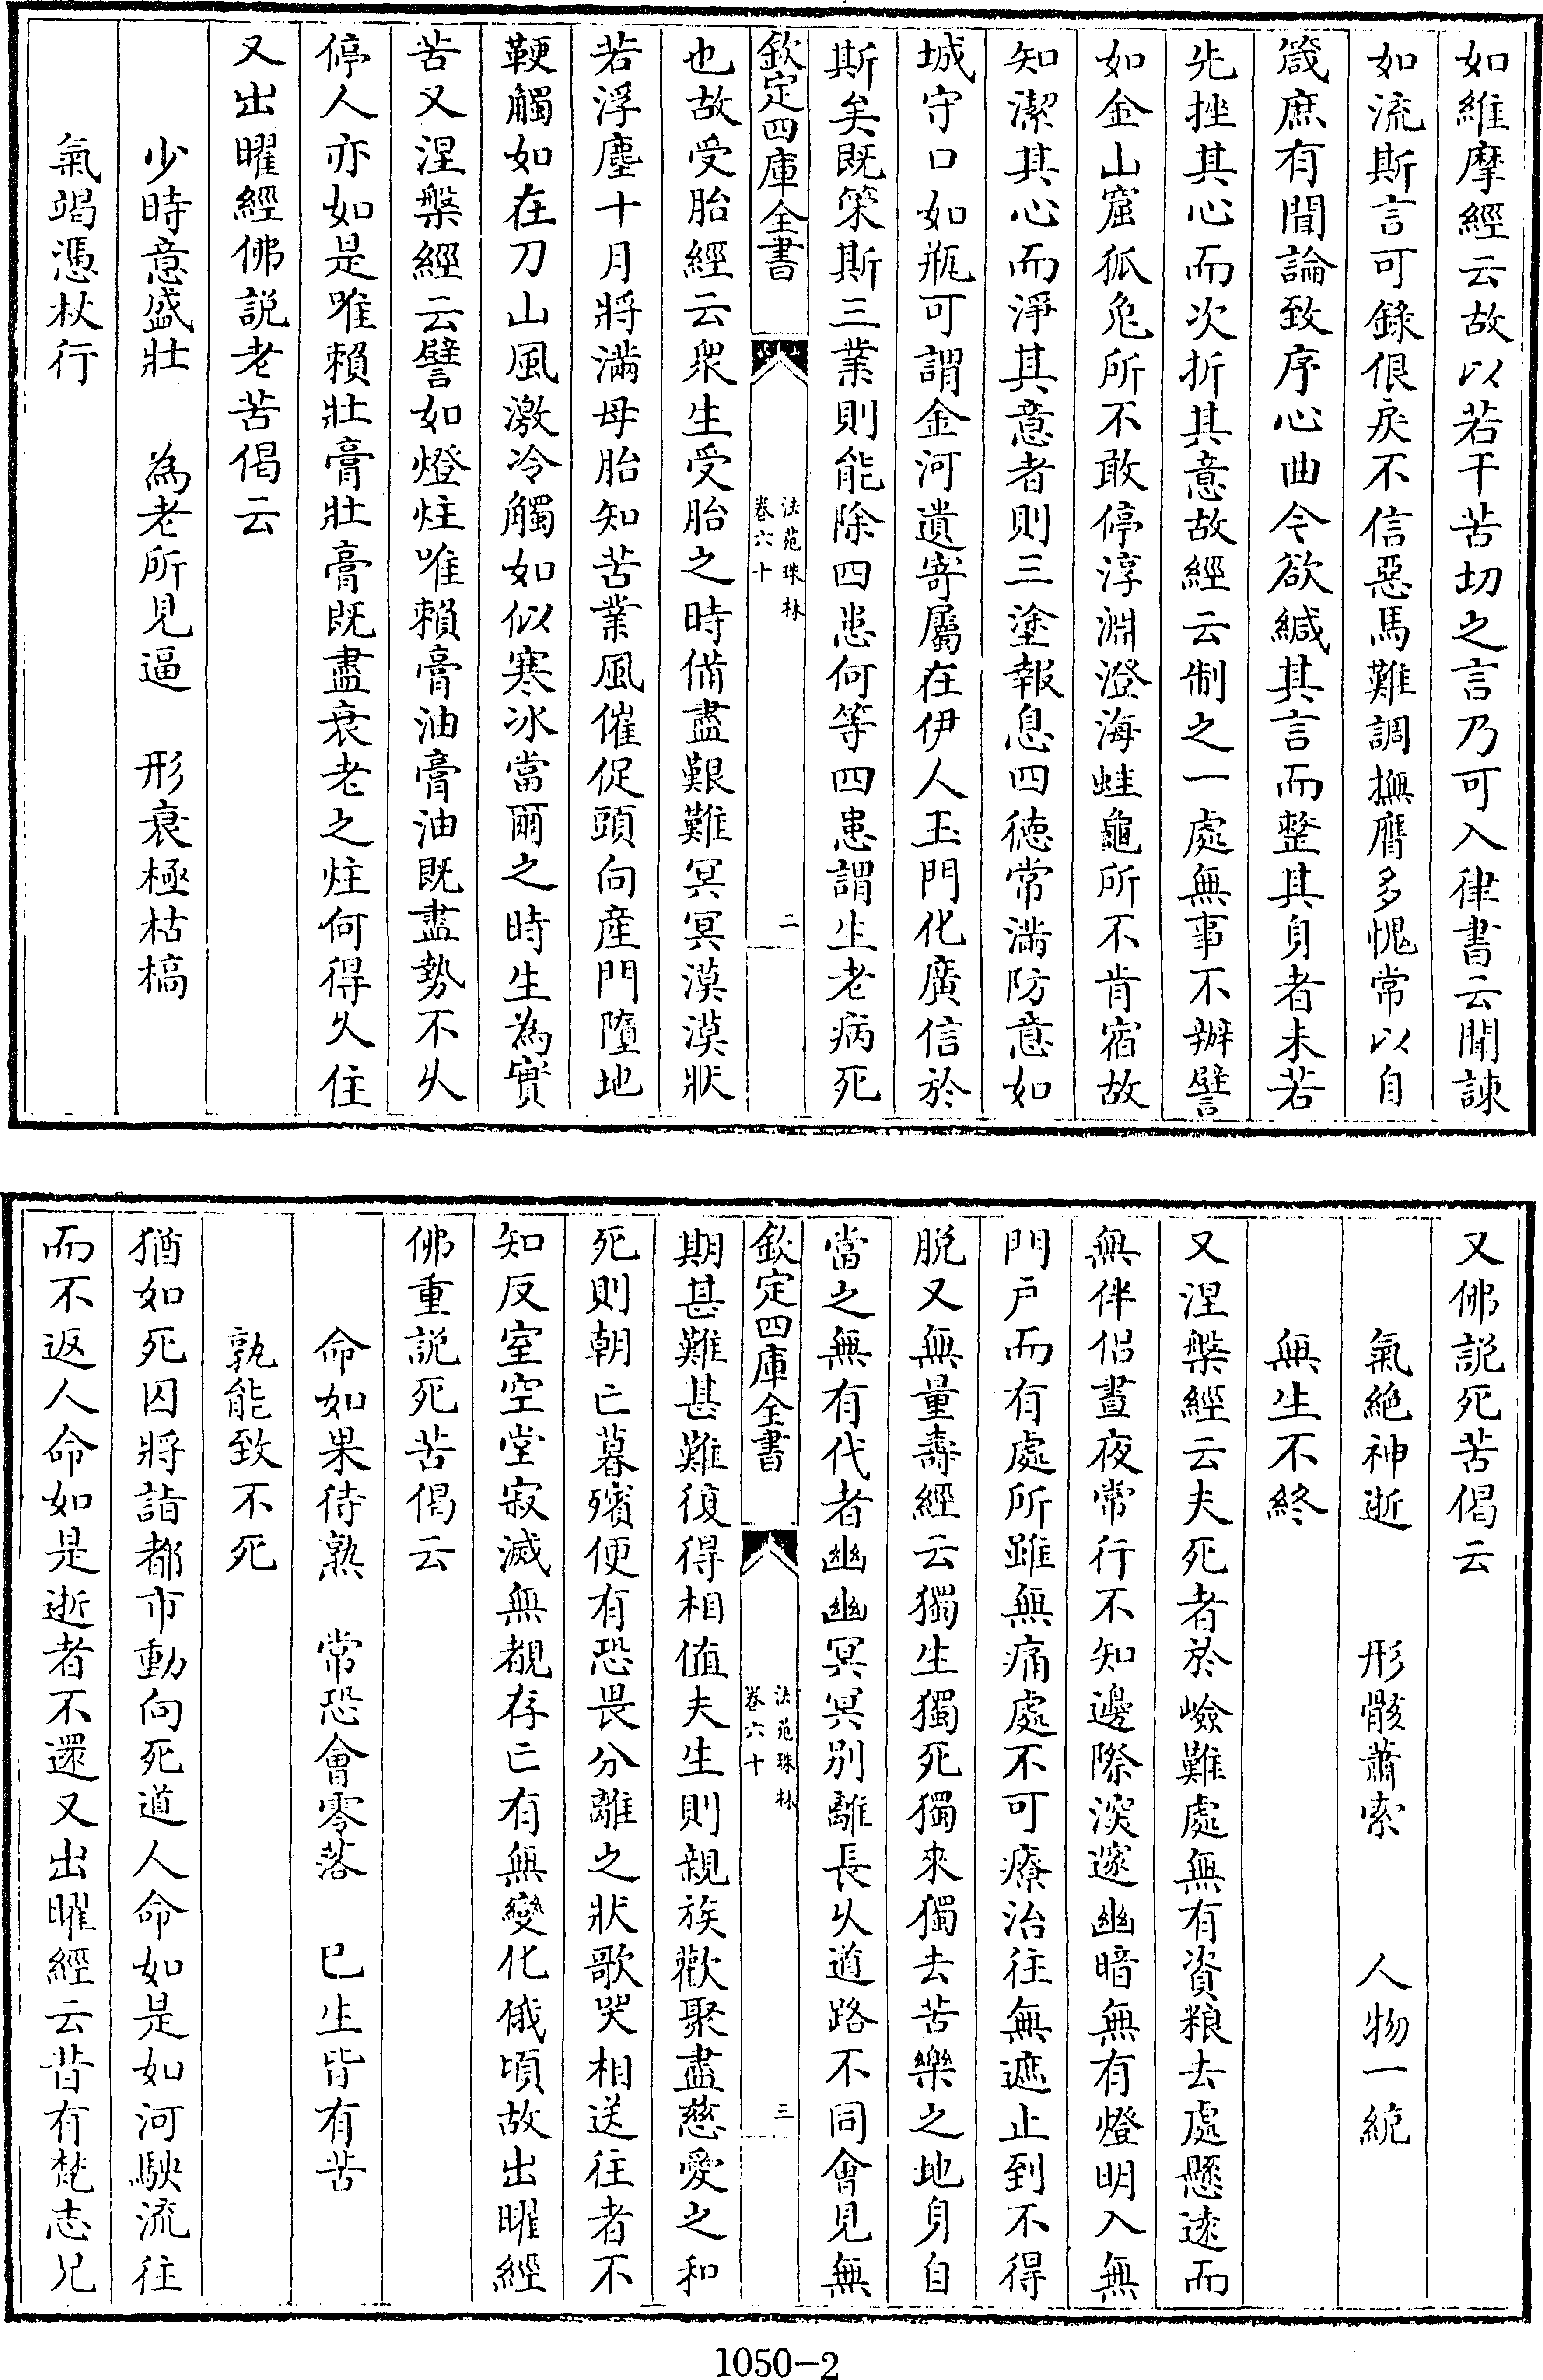 如維摩經云故以若干苦切之言乃可入律書云聞諫
如流斯言可錄佷戾不信惡馬難調撫膺多愧常以自
箴庶有聞論致序心曲令欲緘其言而整其身者未若
先挫其心而次折其意故經云制之一處無事不辦譬
如金山窟狐兎所不敢停淳淵澄海蛙龜所不肯宿故
知潔其心而淨其意者則三塗報息四徳常滿防意如
城守口如瓶可謂金河遺寄屬在伊人玉門化廣信於
斯矣既策斯三業則能除四患何等四患謂生老病死
欽定四庫全書
法苑珠林
卷六十
二
也故受胎經云衆生受胎之時備盡艱難冥冥漠漠狀
若浮塵十月將滿母胎知苦業風催促頭向産門墮地
鞕觸如在刀山風激冷觸如似寒冰當爾之時生為實
苦又涅槃經云譬如燈炷唯賴膏油膏油既盡勢不乆
停人亦如是唯賴壯膏壯膏既盡衰老之炷何得乆住
又出曜經佛説老苦偈云
少時意盛壯　為老所見逼　形衰極枯槁
氣竭憑杖行
又佛説死苦偈云
氣絶神逝　形骸蕭索　人物一統
無生不終
又涅槃經云夫死者於嶮難處無有資粮去處懸逺而
無伴侶晝夜常行不知邊際深邃幽暗無有燈明入無
門戸而有處所雖無痛處不可療治往無遮止到不得
脱又無量壽經云獨生獨死獨來獨去苦樂之地身自
當之無有代者幽幽冥冥别離長乆道路不同會見無
欽定四庫全書
法苑珠林
卷六十
三
期甚難甚難復得相值夫生則親族歡聚盡慈愛之和
死則朝亡暮殯便有恐畏分離之狀歌哭相送往者不
知反室空堂寂滅無覩存亡有無變化俄頃故出曜經
佛重説死苦偈云
命如果待熟　常恐會零落　已生皆有苦
孰能致不死
猶如死囚將詣都市動向死道人命如是如河駛流往
而不返人命如是逝者不還又出曜經云昔有梵志兄
1050-2